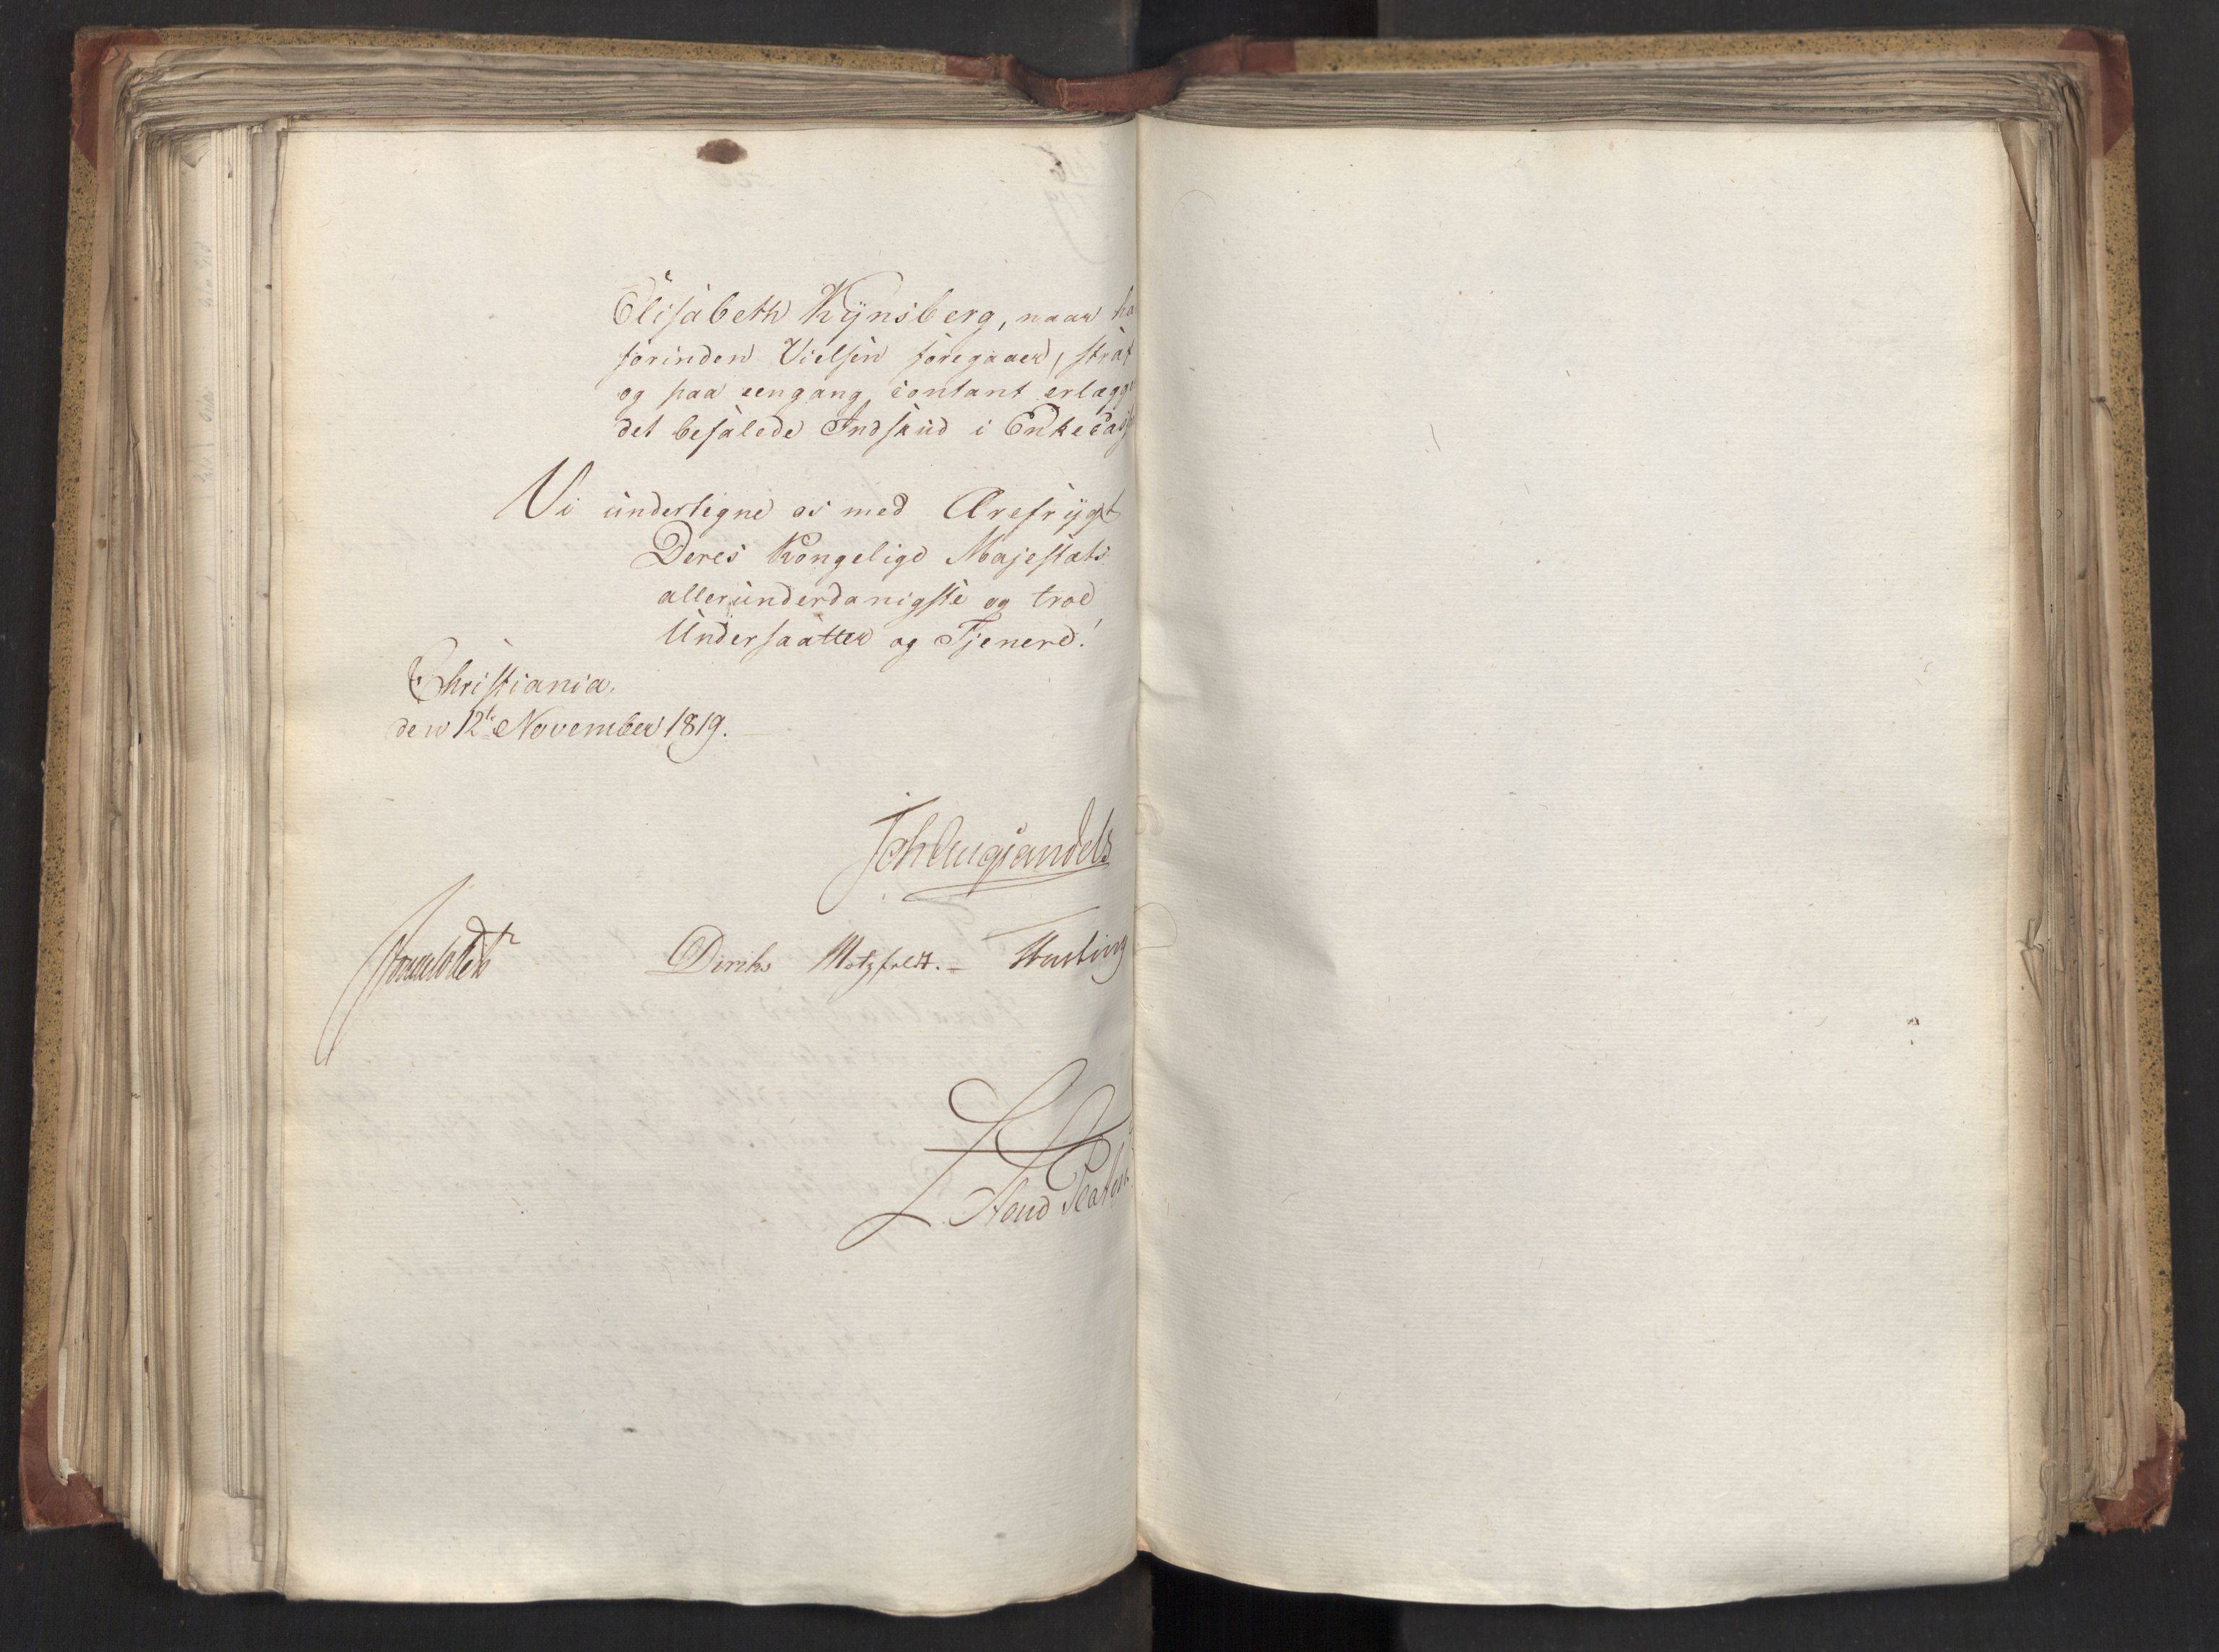 Elisabeth Kÿnsberg, naar ha
forinden Vielsen foregaaer, strax
og paa eengang contant erlægge
det befalede Indskud i Enkecass
Vi undertegne os med Ærefrÿgt
Deres Kongelige Majestæts
allerunderdanigste og troe
Undersaatter og Tjenere!
Christiania,
den 12te November 1819.
Joh Aug Sandels
Sommerfeldt Diriks Motzfeldt. Hartvig